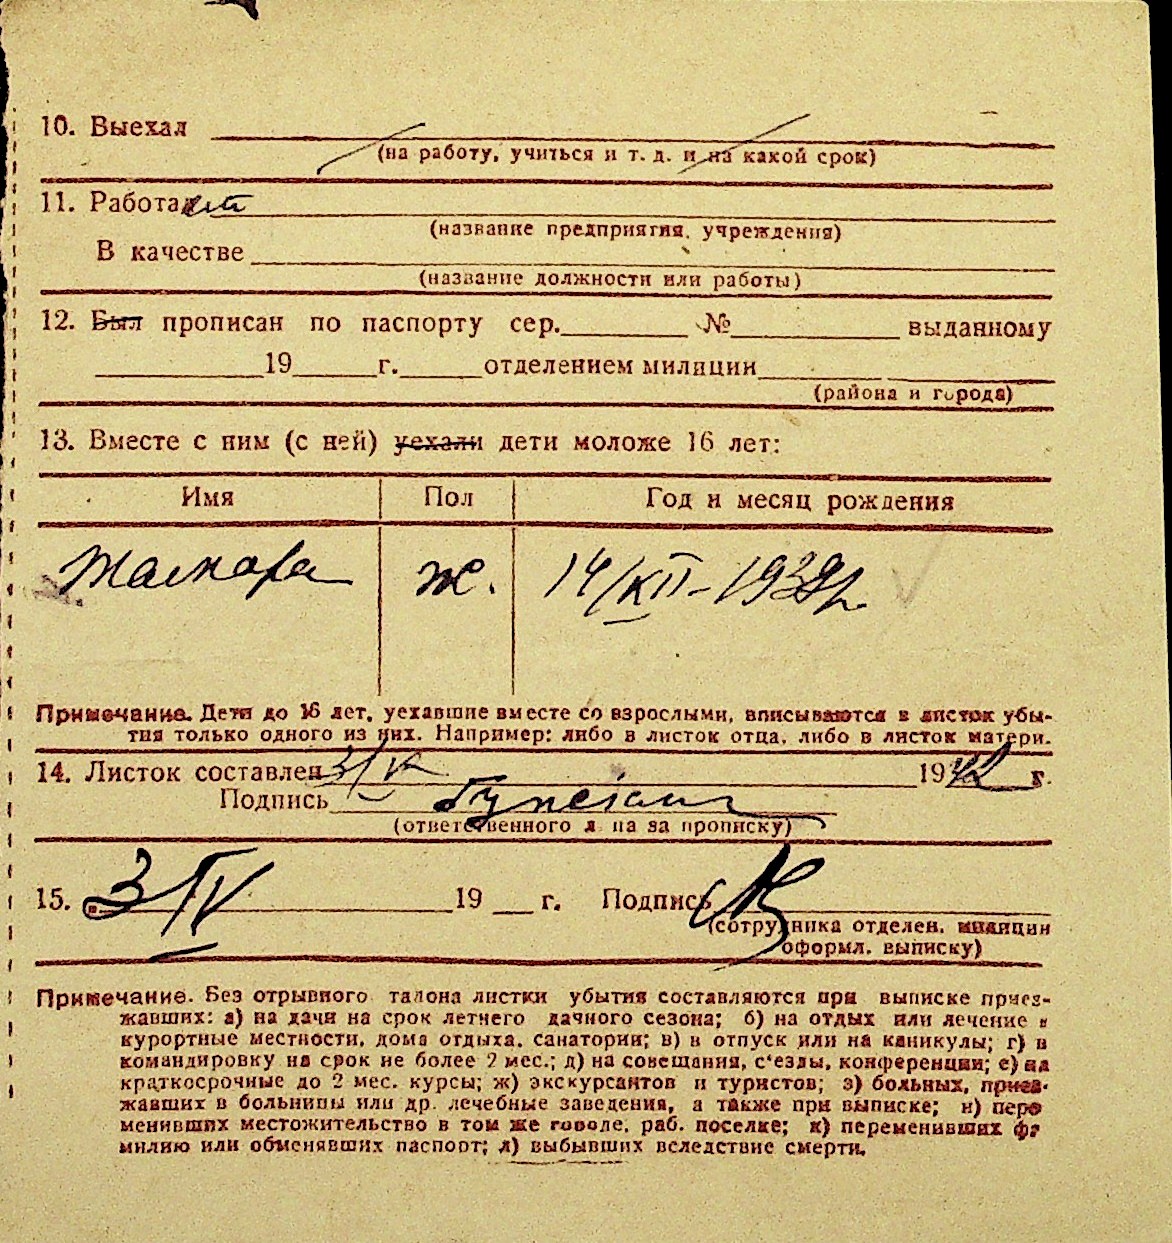 10. Выехал
(на работу, учиться и т. д. и на какой срок)
11. Работает
(название предприятия, учреждения)
В качестве
(название должности или работы)
12. Был прописан по паспорту сер. № выданному
19 г. отделением милиции
(района и города)
13. Вместе с ним (с ней) уехали дети моложе 16 лет:
Имя Пол Год и месяц рождения
Тамара ж. 14/XII-1939г.
Примечание. Дети до 16 лет, уехавшие вместе со взрослыми, вписываются в листок убы-
тия только одного из них. Например: либо в листок отца, либо в листок матери.
14. Листок составлен 3/IV 1942 г.
Подпись
(ответственного л па за прописку)
15. 3/IV 19 г. Подпись
(сотрудника отделен. милиции
оформл. выписку)
Примечание. Без отрывного талона листки убытия составляются при выписке приез-
жавших: а) на дачи на срок летнего дачного сезона; б) на отдых или лечение в
курортные местности, дома отдыха, санатории; в) в отпуск или на каникулы; г) в
командировку на срок не более 2 мес.; д) на совещания, с'езды, конференции; е) на
краткосрочные до 2 мес. курсы; ж) экскурсантов и туристов; з) больных, приез-
жавших в больницы или др. лечебные заведения, а также при выписке; и) пере
менивших местожительство в том же городе, раб. поселке; к) переменивших фа
милию или обменявших паспорт; л) выбывших вследствие смерти.